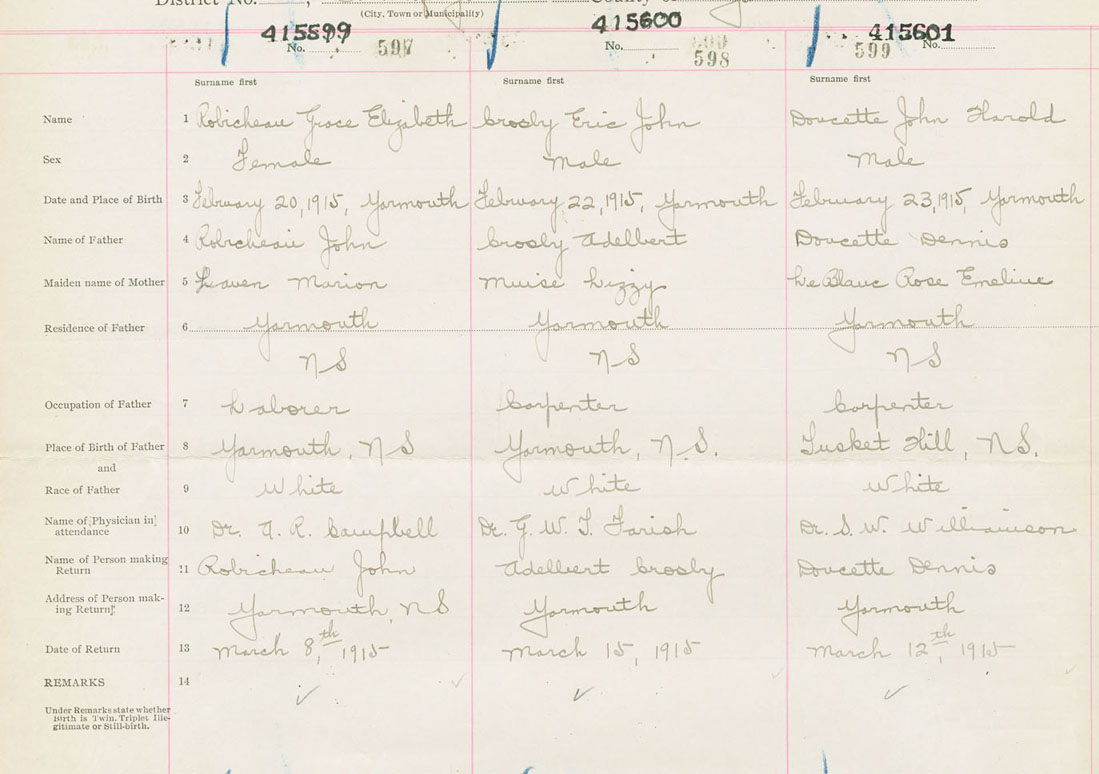 District No. , County of
(City, Town or Municipality)
415599 415600 415601
No. 597 No. 598 599 No.
Surname first Surname first Surname first
Name 1 Robicheau Grace Elizabeth Crosby Eric John Doucette John Harold
Sex 2 Female Male Male
Date and Place of Birth 3 February 20, 1915, Yarmouth February 22, 1915, Yarmouth February 23, 1915, Yarmouth
Name of Father 4 Robicheau John Crosby Adelbert Doucette Dennis
Maiden name of Mother 5 Marion Muise Lizzy LeBlanc Rose Emeline
Residence of Father 6 Yarmouth Yarmouth Yarmouth
NS NS NS
Occupation of Father 7 Laborer Carpenter Carpenter
Place of Birth of Father 8 Yarmouth, NS Yarmouth, N.S. Tusket Hill, NS.
and
Race of Father 9 White White White
Name of Physician in attendance 10 Dr. A. R. Campbell Dr. G. W. T. Farish Dr. S. W. Williamson
Name of Person making Return 11 Robicheau John Adelbert Crosby Doucette Dennis
Address of Person mak-
ing Return 12 Yarmouth, NS Yarmouth Yarmouth
Date of Return 13 March 8th, 1915 March 15, 1915 March 12th, 1915
REMARKS 14
Under Remarks state whether
Birth is Twin, Triplet Ille-
gitimate or Still-birth.